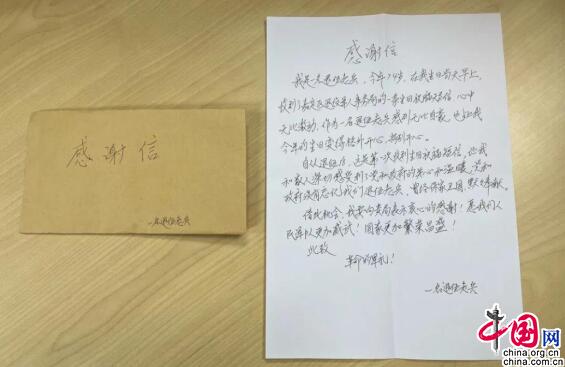 感谢信
一名退伍老兵
感谢信
我是一名退伍老兵，今年74岁，在我生日当天早上，
收到了嘉定区退役军人事务局的一条生日祝福短信，心中
无比激动，作为一名退伍老兵感到无比自豪，也让我
今年的生日变得格外开心，特别开心。
自从退伍后，这是第一次收到生日祝福短信，让我
和家人深切感受到了党和政府的关心和温暖，党和
政府没有忘记我们退伍老兵，曾经保家卫国，默默奉献。
借此机会，我要向贵局表示衷心的感谢！愿我们人
民军队更加威武！国家更加繁荣昌盛！
此致
革命的军礼！
一名退伍老兵
中国网
china.org.cn
china.com.cn